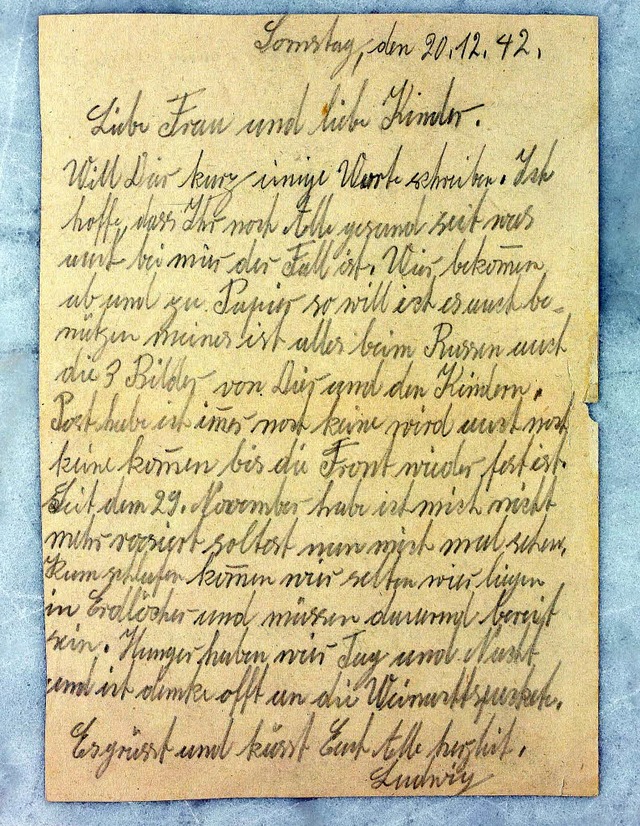 Somstag, den 20.12.42.
Liebe Frau und liebe Kinder.
Will Dir kurz einige Worte schreiben. Ich
hoffe, dass Ihr noch Alle gesund seit was
auch bei mir der Fall ist. Wir bekom̄en
ab und zu Papier so will ich es auch be-
nützen meines ist alles beim Russen auch
die 3 Bilder von Dir und den Kindern.
Post habe ich im̄er noch keine wird auch noch
keine kom̄en bis die Front wieder fest ist.
Seit dem 29. November habe ich mich nicht
mehr rasiert soltest nun mich mal sehen.
Zum schlafen kom̄en wir selten wir liegen
in Erdlöcher und müssen dauernd bereit
sein. Hunger haben wir Tag und Nacht
und ich denke offt an die Weinachtspakete.
Es grüsst und küsst Euch Alle herzlich.
Ludwig